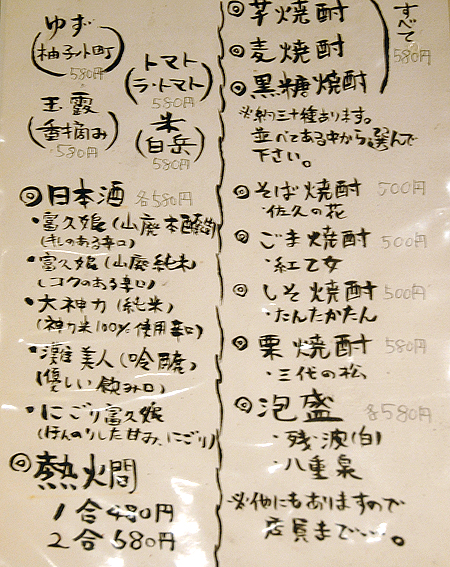 ゆず
(柚子小町)
580円
トマト
(ラ・トマト)
580円
玉露
(番摘み)
580円
米
(白岳)
580円
◎日本酒 各580円
・富久娘(山廃本醸造)
(キレのある辛口)
・富久娘(山廃純米)
(コクのある辛口)
・大神力(純米)
(神力米100%使用辛口)
・灘美人(吟醸)
(優しい飲み口)
・にごり富久娘
(ほんのりした甘み、にごり)
◎熱燗
1合480円
2合680円
◎芋焼酎
◎麦焼酎
◎黒糖焼酎
すべて
580円
※約三十種あります。
並べてある中から選んで
下さい。
◎そば焼酎 500円
・佐久の花
◎ごま焼酎 500円
・紅乙女
◎しそ焼酎 500円
・たんたかたん
◎栗焼酎 580円
・三代の松
◎泡盛 各580円
・残波(白)
・八重泉
※他にもありますので
店員まで…。